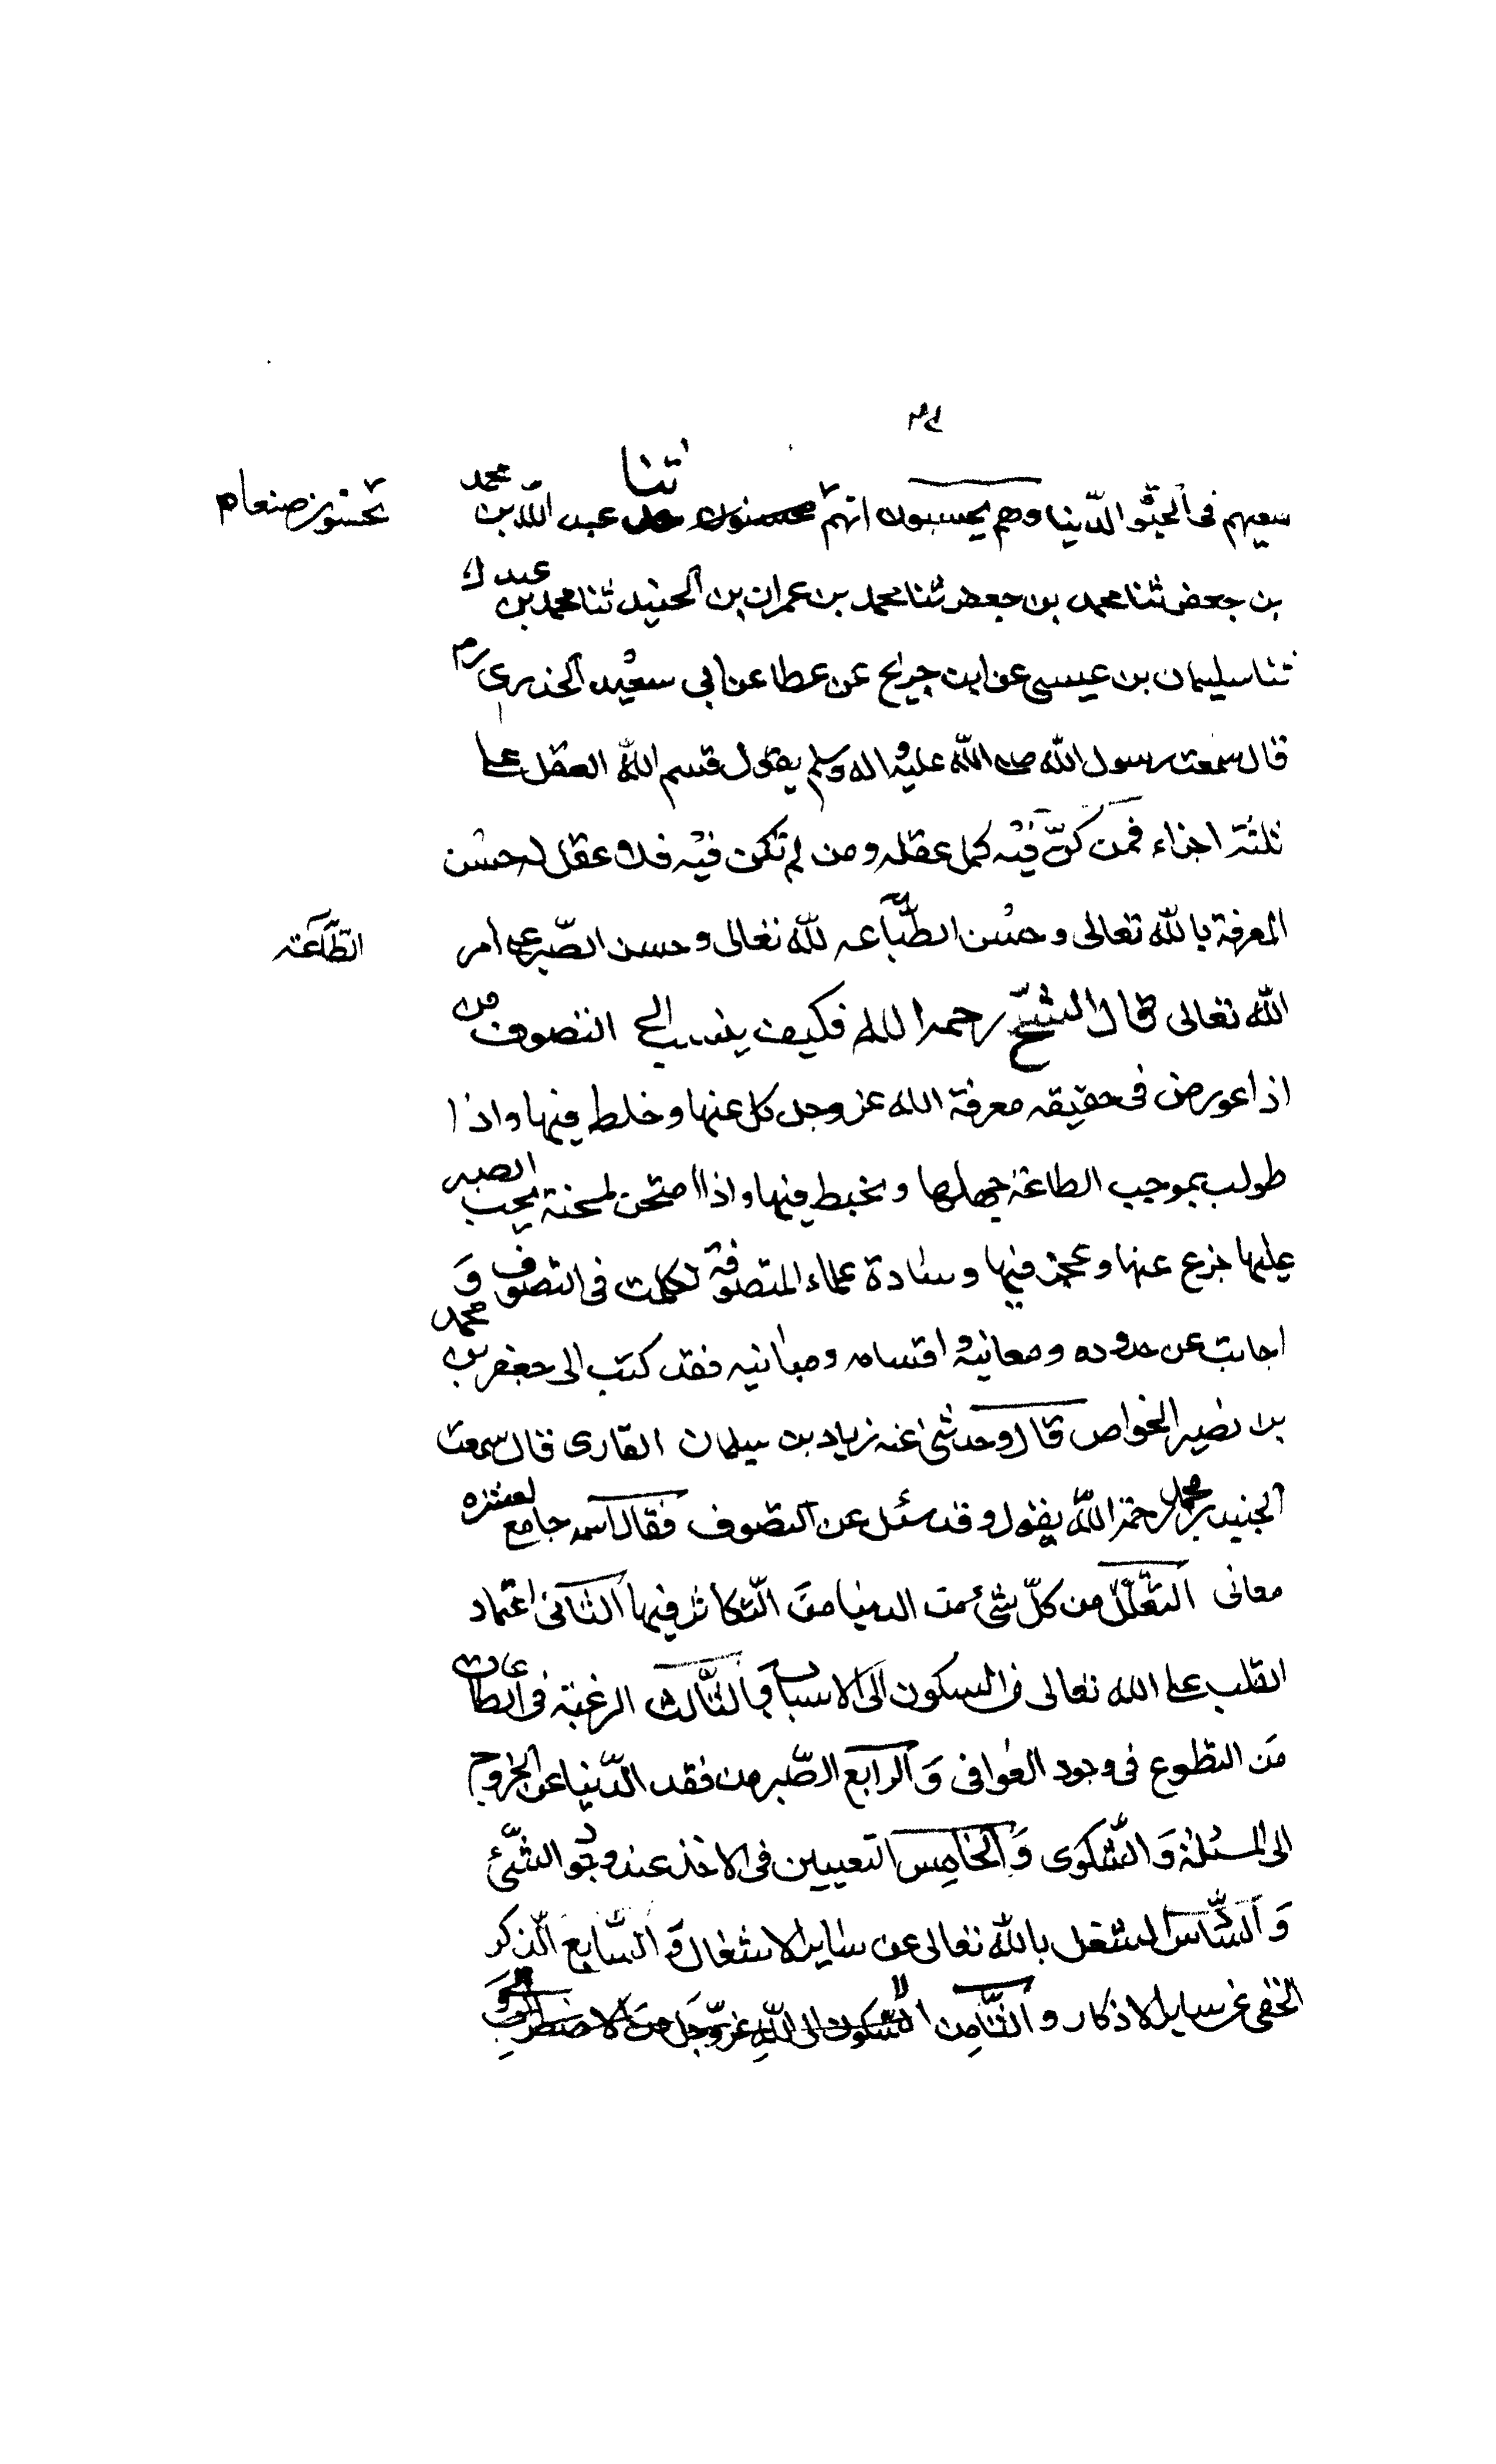 سعيهم فى الحيوة الدّنيا وهم يحسبون انهم محسنون ثنا عبد الله بن محمد
يحسنون صنعا م
بن جعفر ثنا محمد بن جعفر ثنا محمد بن عمران بن الجنيد ثنا محمد بن عبدك
ثنا سليمان بن عيسى عن ابن جريح عن عطا عن ابي سعيد الخدرى رم
قال سمعت رسول الله صلى الله عليه واله وسلم يقول قسم الله العقل على
ثلثة اجزاء فمن كنّ فيه كمل عقله ومن لم تكن فيه فلا عقل له حسن
المعرفة بالله تعالى وحسن الطّاعه لله تعالى وحسن الصّبر على امر
الطّاعته
الله تعالى قال الشيخ رحمه الله فكيف ينسب الى التصوف من
اذا عورض فى حقيقه معرفة الله عز وجل كل عنها وخلط فيها واذا
طولب بموجب الطاعة جهلها وخبط فيها واذا امتحن لمحنة يجب الصبر
عليها جزع عنها وعجز فيها وسادة علماء المتصوفة تكلمت فى التصوف وَ
اجابت عن حدوده ومعانيه واقسامه ومبانيه فقد كتب الى جعفر بن محمد
بن نصير الخواص قال وحدثنى عنه زياد بن سيلمان القارى قال سمعت
الجنيد بن محمد رحمة الله يقول وقد سئل عن التصوف فقال اسم جامع لعشره
معانى التقلّل من كلّ شئ من الدنيا من التّكاثر فيها الثانى اعتماد
القلب على الله تعالى من السكون الى الاسباب والثّالث الرغبة فى الطاعات
مَن التطوع فى وجود العوافى وَالرابع الصّبر من فقد الدّنيا عن الخروج
الى المسئلة وَالشّكوى وَالخامِس التعييين فى الاخذ عند وجود الشّئ
وَالسّادس الشغل بالله تعالى عن ساير الاشغال وَالسّابع الذّكر
الخفى عن ساير الاذكار والثّامِن السّكون الى اللّهِ عزّ وجَلّ مِن الاضطراب